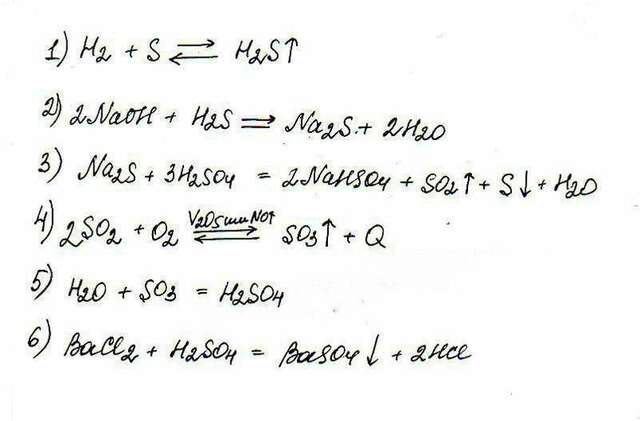 1) H₂ + S ⇄ H₂S↑
2) 2NaOH + H₂S ⇒ Na₂S + 2H₂O
3) Na₂S + 3H₂SO₄ = 2NaHSO₄ + SO₂↑ + S↓ + H₂O
4) 2SO₂ + O₂ V₂O₅ или NO↑ ⇄ SO₃↑ + Q
5) H₂O + SO₃ = H₂SO₄
6) BaCl₂ + H₂SO₄ = BaSO₄↓ + 2HCl